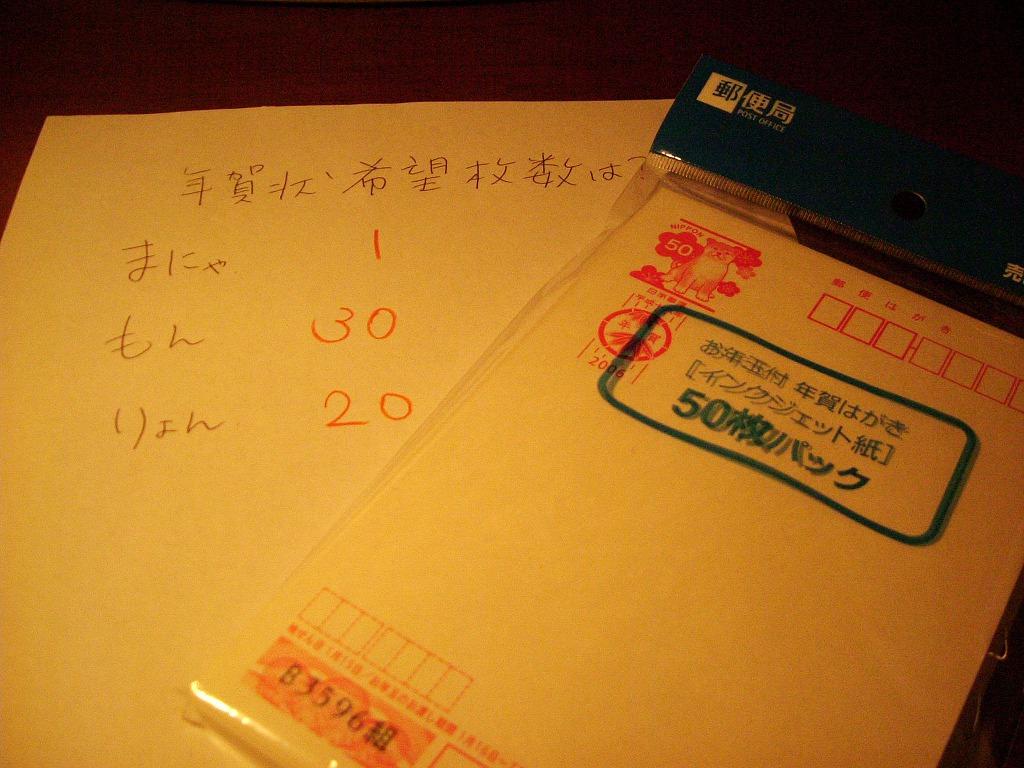 年賀状 希望枚数は?
まにゃ 1
もん 30
りょん 20
郵便局
POST OFFICE
NIPPON
50
日本郵便
年賀
2006
郵便はがき
お年玉付 年賀はがき
[インクジェット紙]
50枚パック
B3596組